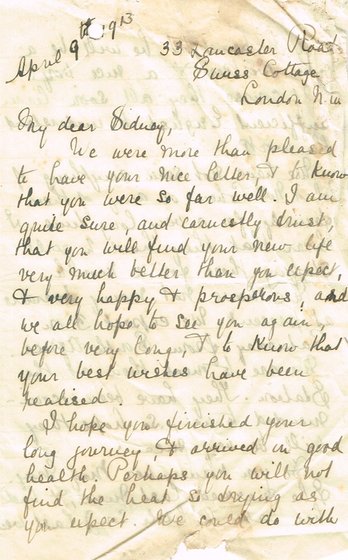 April 9th 1913
33 Lancaster Road
Swiss Cottage
London N.W
My dear Sidney,
We were more than pleased
to have your nice letter & to know
that you were so far well. I am
quite sure, and earnestly trust,
that you will find your new life
very much better than you expect,
& very happy & prosperous, and
we all hope to see you again,
before very long, & to know that
your best wishes have been
realised.
I hope you finished your
long journey, & arrived in good
health. Perhaps you will not
find the heat so drying as
you expect. We could do with